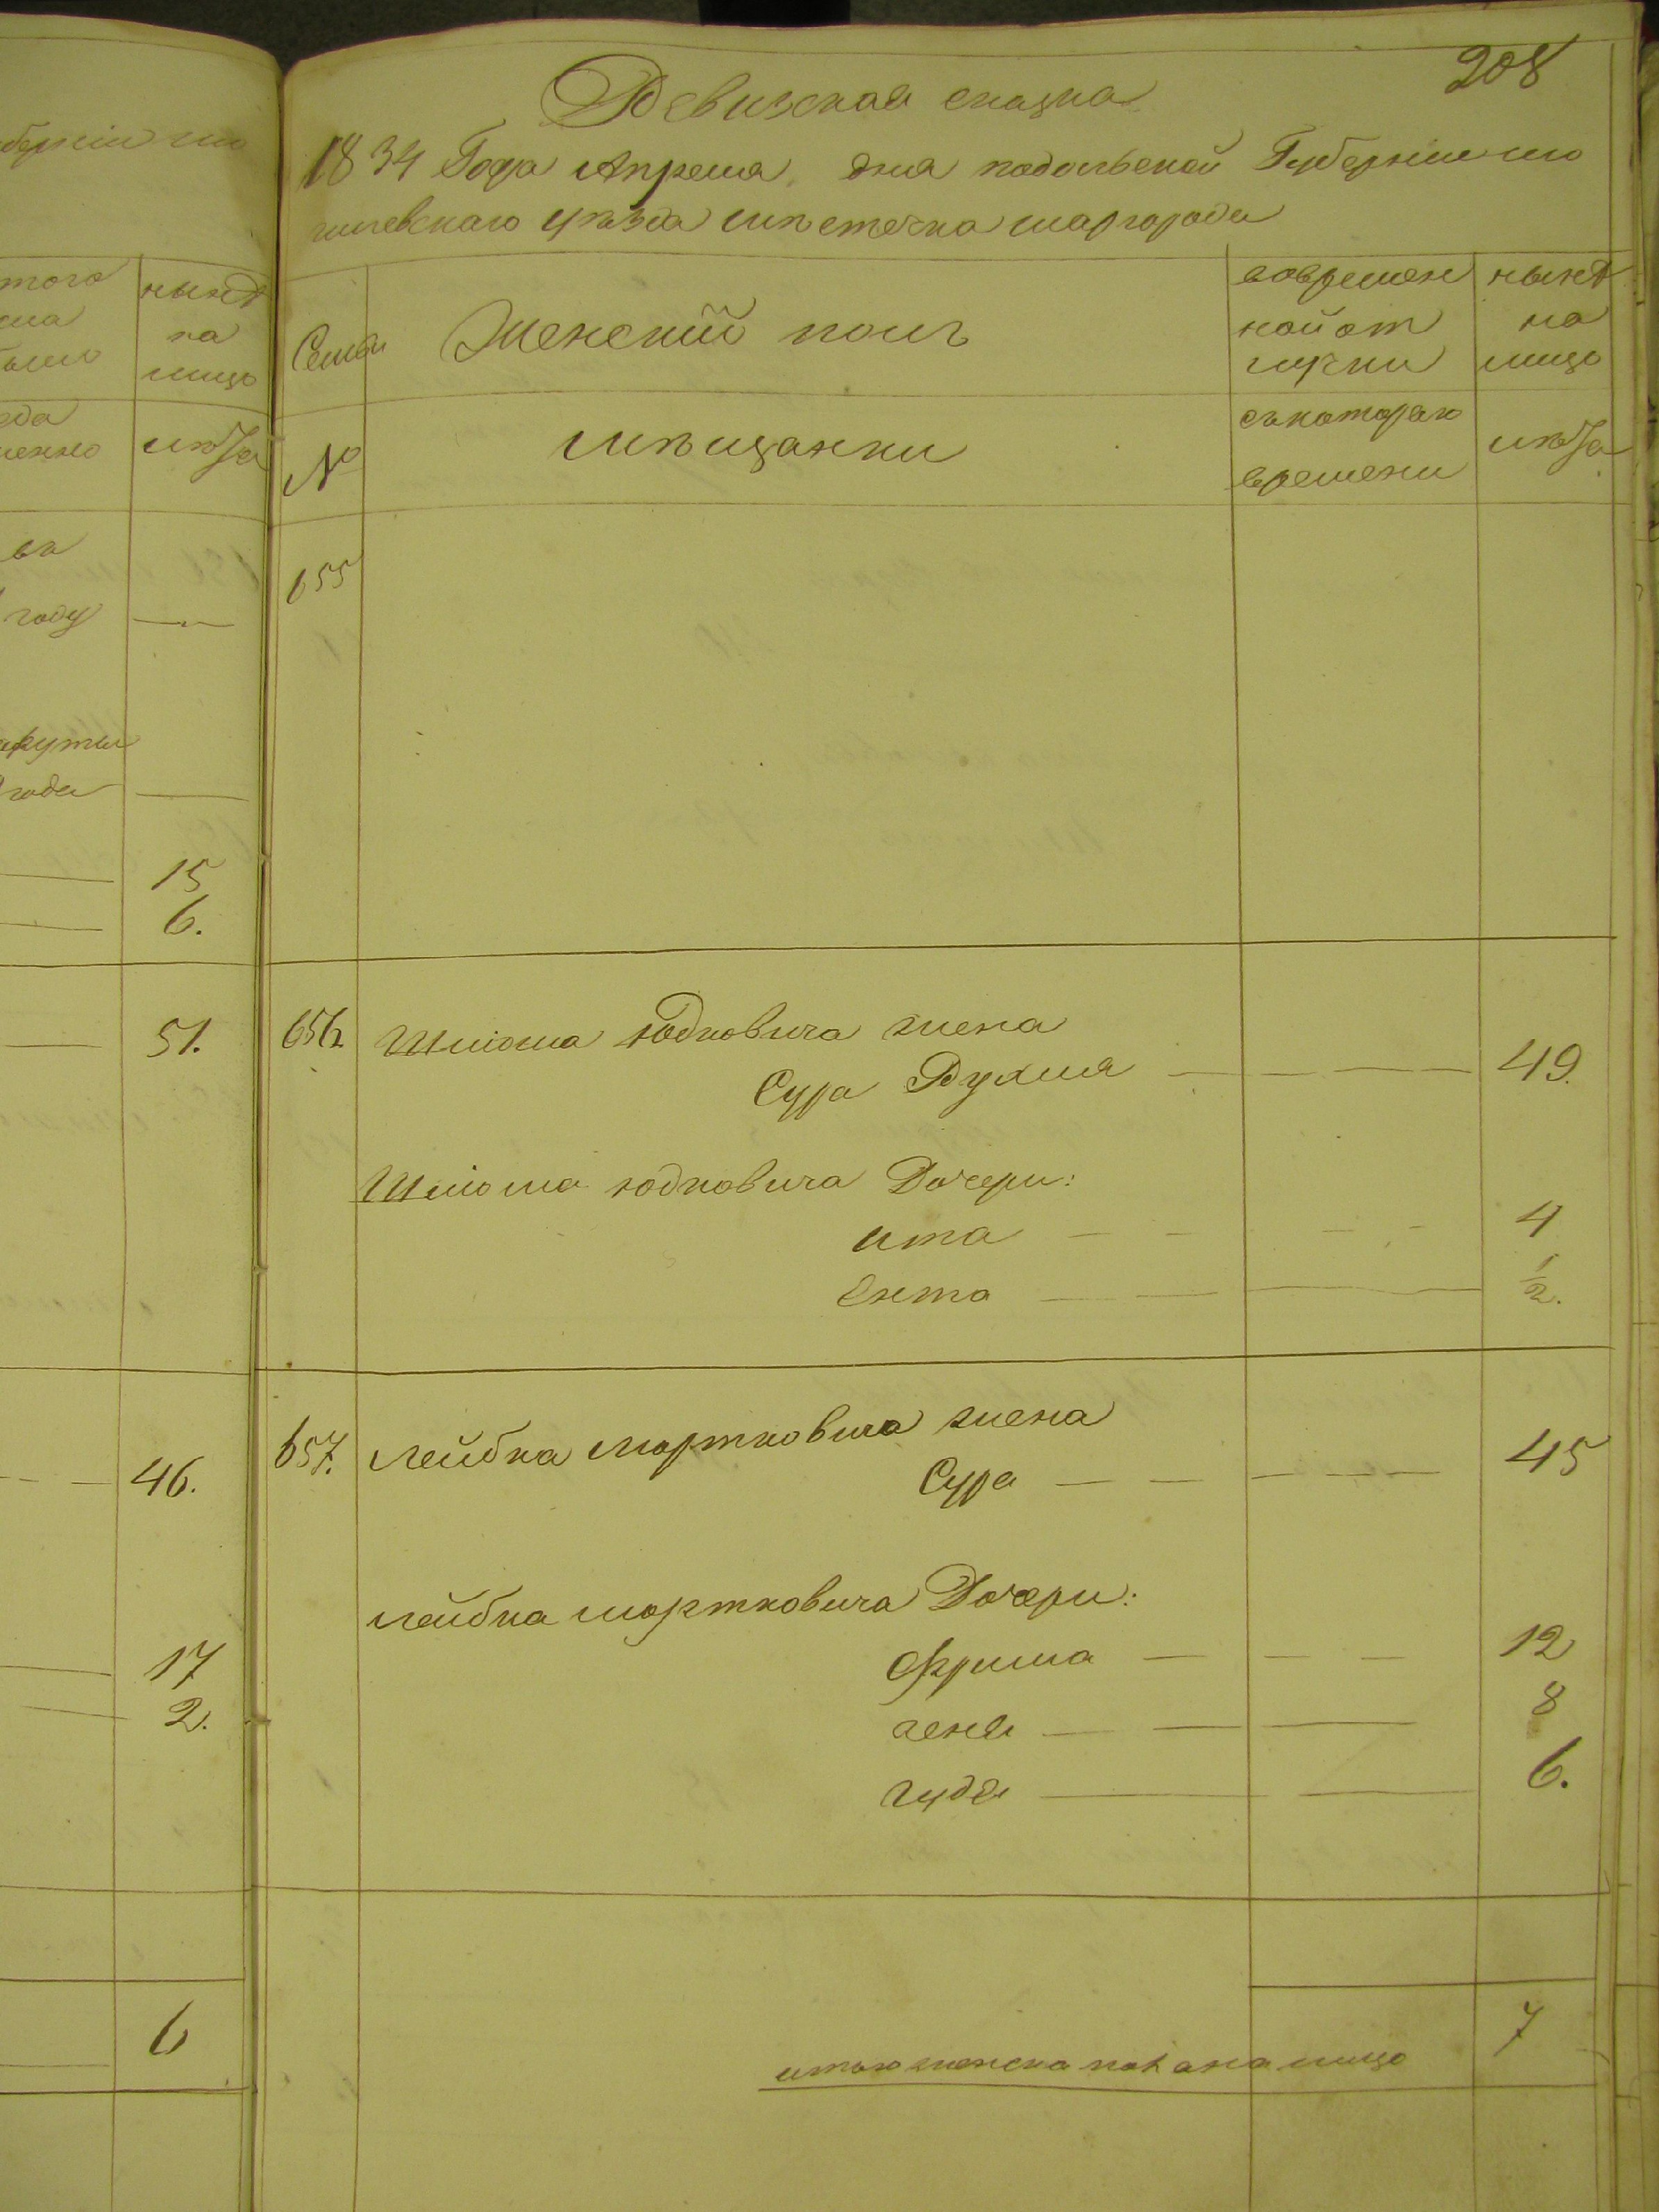 208
Ревизская сказка
1834 Года Апреля дня подольской Губернии мо
гилевскаго уѣзда мѣстечка шаргорода
Семьи
Женский полъ
вовремен
ной от
лучки
нынѣ
на
лицо
№
мѣщанки
съкотораго
времени
лѣта
655
656. Шлиома юдковича жена
Сура Рухля 49.
Шлиома юдковича Дочери:
ита 4
Ента 1/2.
657. лейбка мортковича жена
Сура 45
лейбка мортковича Дочери:
Фрима 12
геня 8
гудя 6.
итого женска пола на лицо 7
нынѣ
на
лицо
лѣта
году
15
6.
51.
46.
17
2.
6